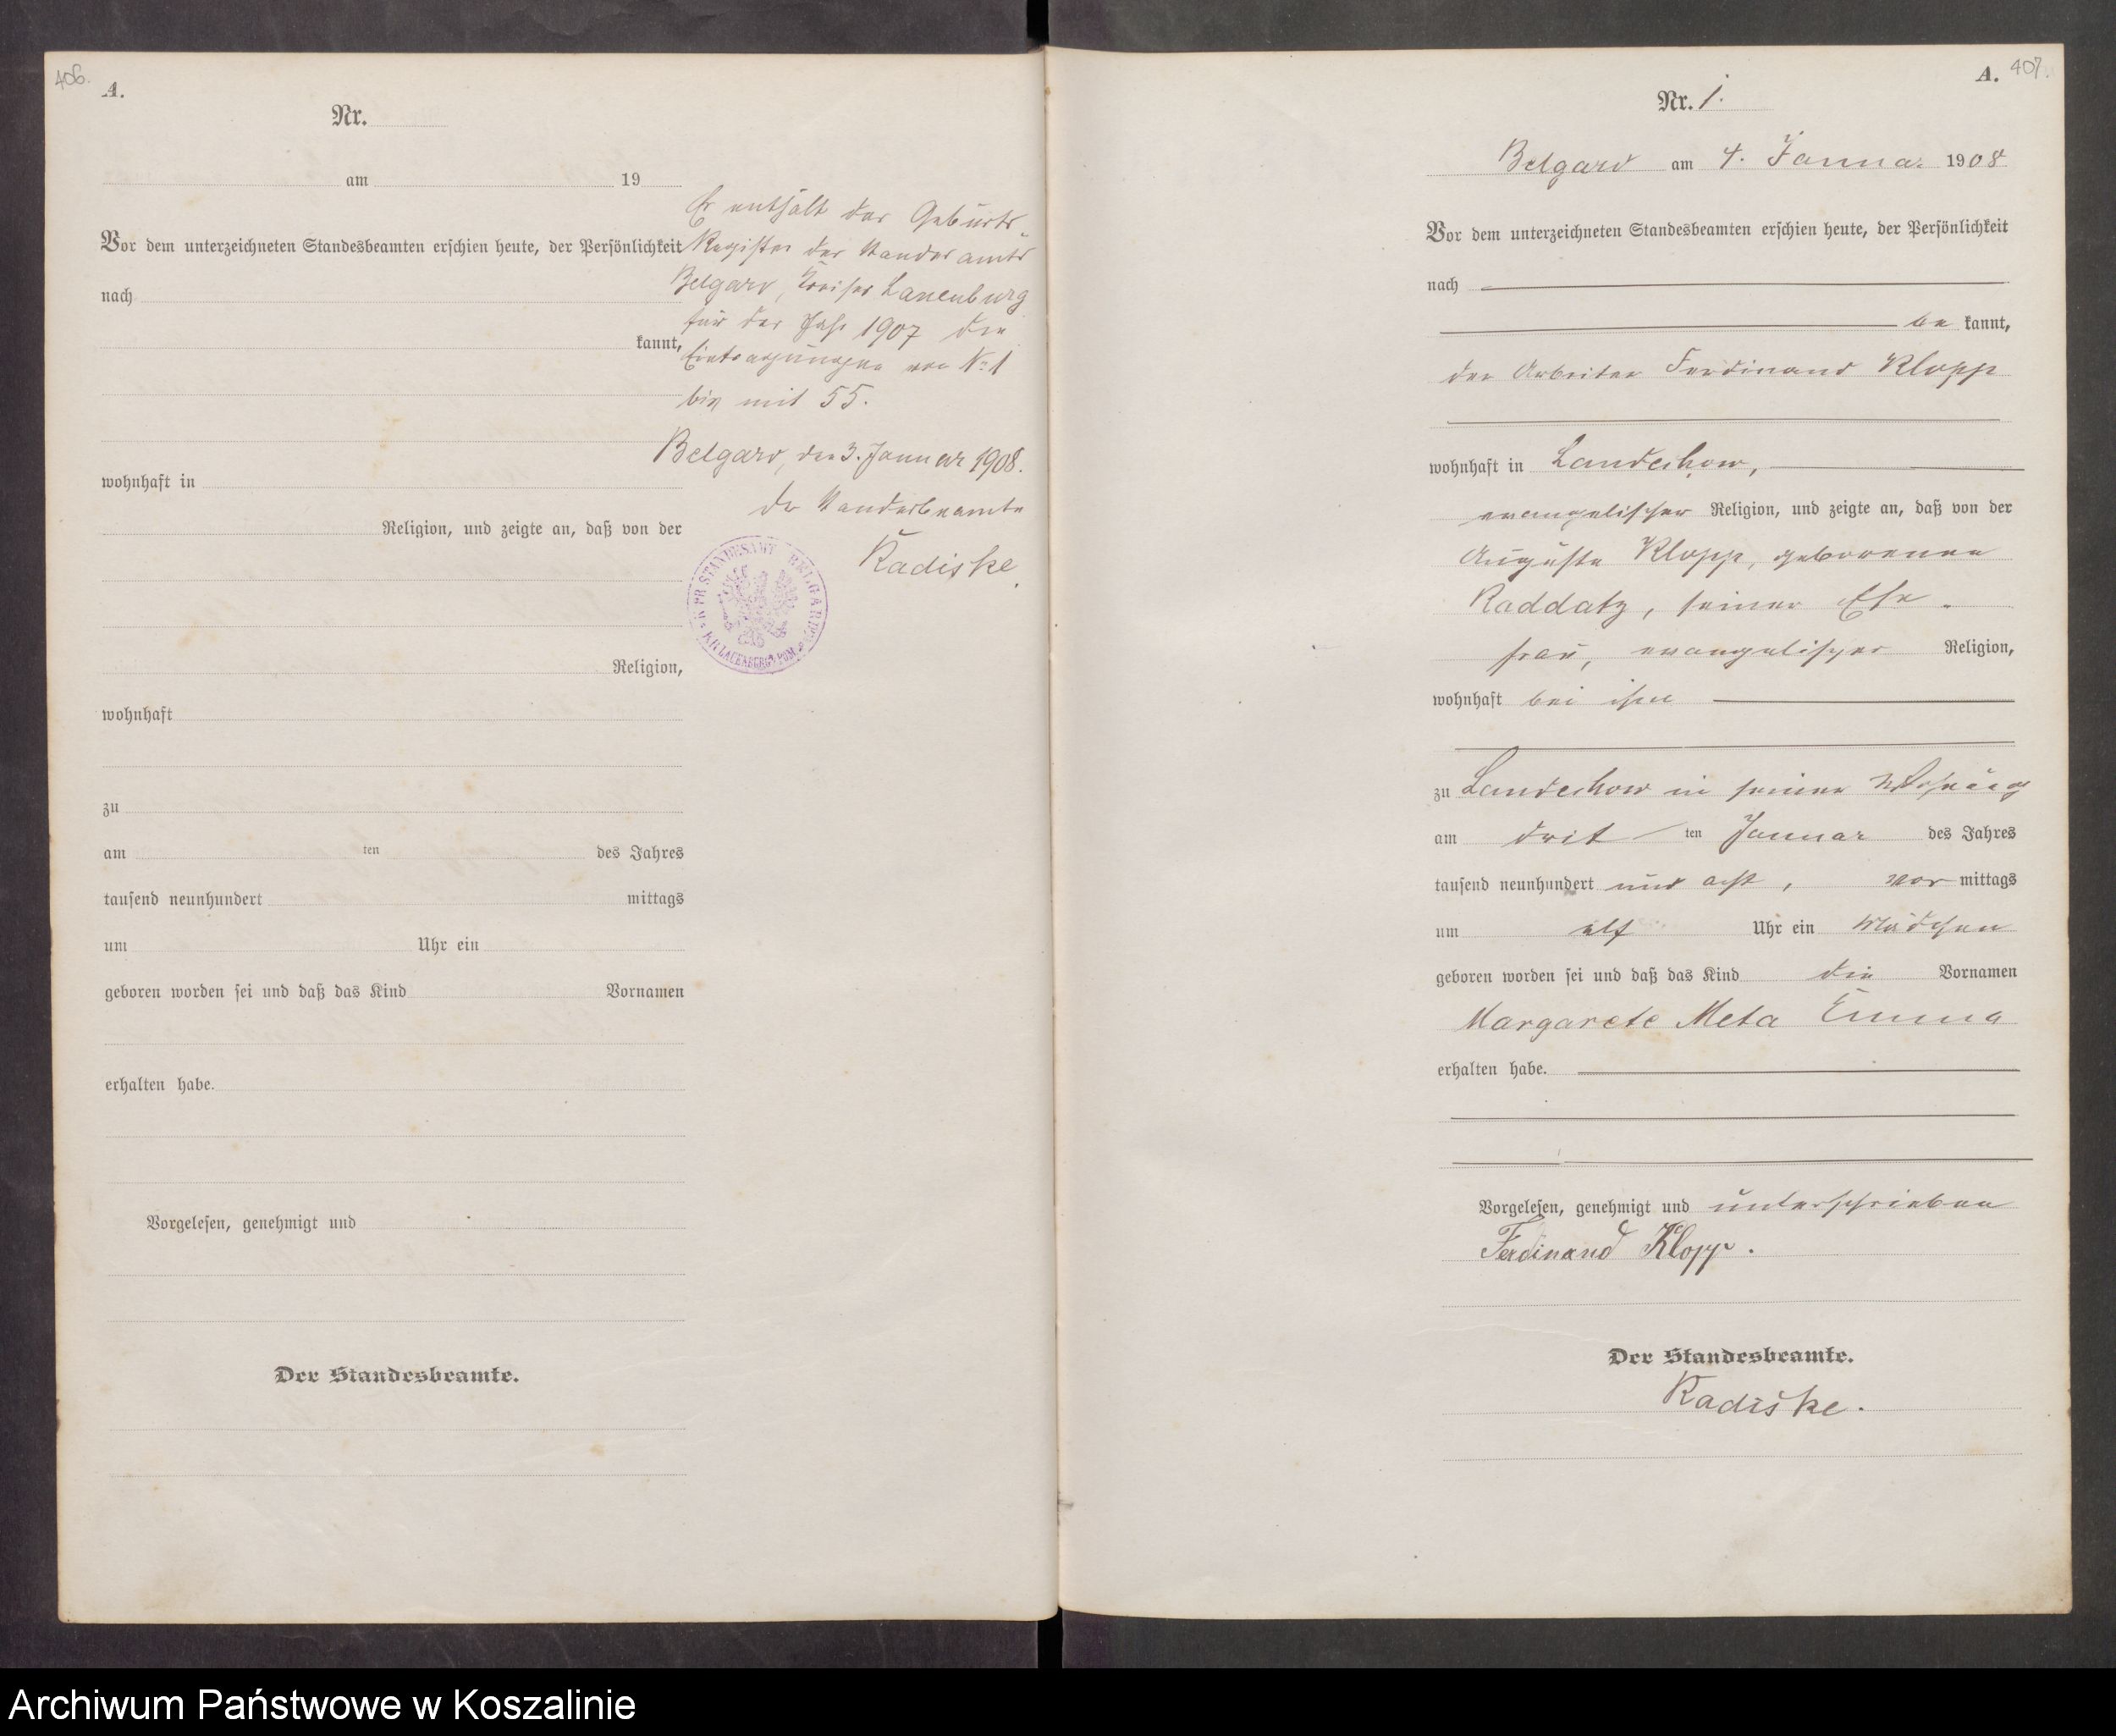 406.
A.
Nr.
am 19
Vor dem unterzeichneten Standesbeamten erschien heute, der Persönlichkeit
nach
kannt,
wohnhaft in
Religion, und zeigte an, daß von der
Religion,
wohnhaft
zu
am ten des Jahres
tausend neunhundert mittags
um Uhr ein
geboren worden sei und daß das Kind Vornamen
erhalten habe.
Vorgelesen, genehmigt und
Der Standesbeamte.
Es enthält das Geburts-
Register des Standesamts
Belgard, Kreises Lauenburg
für das Jahr 1907 die
Eintragungen von No 1
bis mit 55.
Belgard, den 3. Januar 1908.
Der Standesbeamte
Radiske
K. PR. STANDESAMT BELGARD
KR. LAUENBURG I. POM.
A. 407.
Nr. 1.
Belgard am 4. Januar 1908
Vor dem unterzeichneten Standesbeamten erschien heute, der Persönlichkeit
nach
be kannt,
der Arbeiter Ferdinand Klopp
wohnhaft in Landechow,
evangelischer Religion, und zeigte an, daß von der
Auguste Klopp, geborenen
Raddatz, seiner Ehe-
frau, evangelischer Religion,
wohnhaft bei ihm
zu Landechow in seiner Wohnung
am drit ten Januar des Jahres
tausend neunhundert und acht, vor mittags
um elf Uhr ein Mädchen
geboren worden sei und daß das Kind die Vornamen
Margarete Meta Emma
erhalten habe.
Vorgelesen, genehmigt und unterschrieben
Ferdinand Klopp.
Der Standesbeamte.
Radiske.
Archiwum Państwowe w Koszalinie